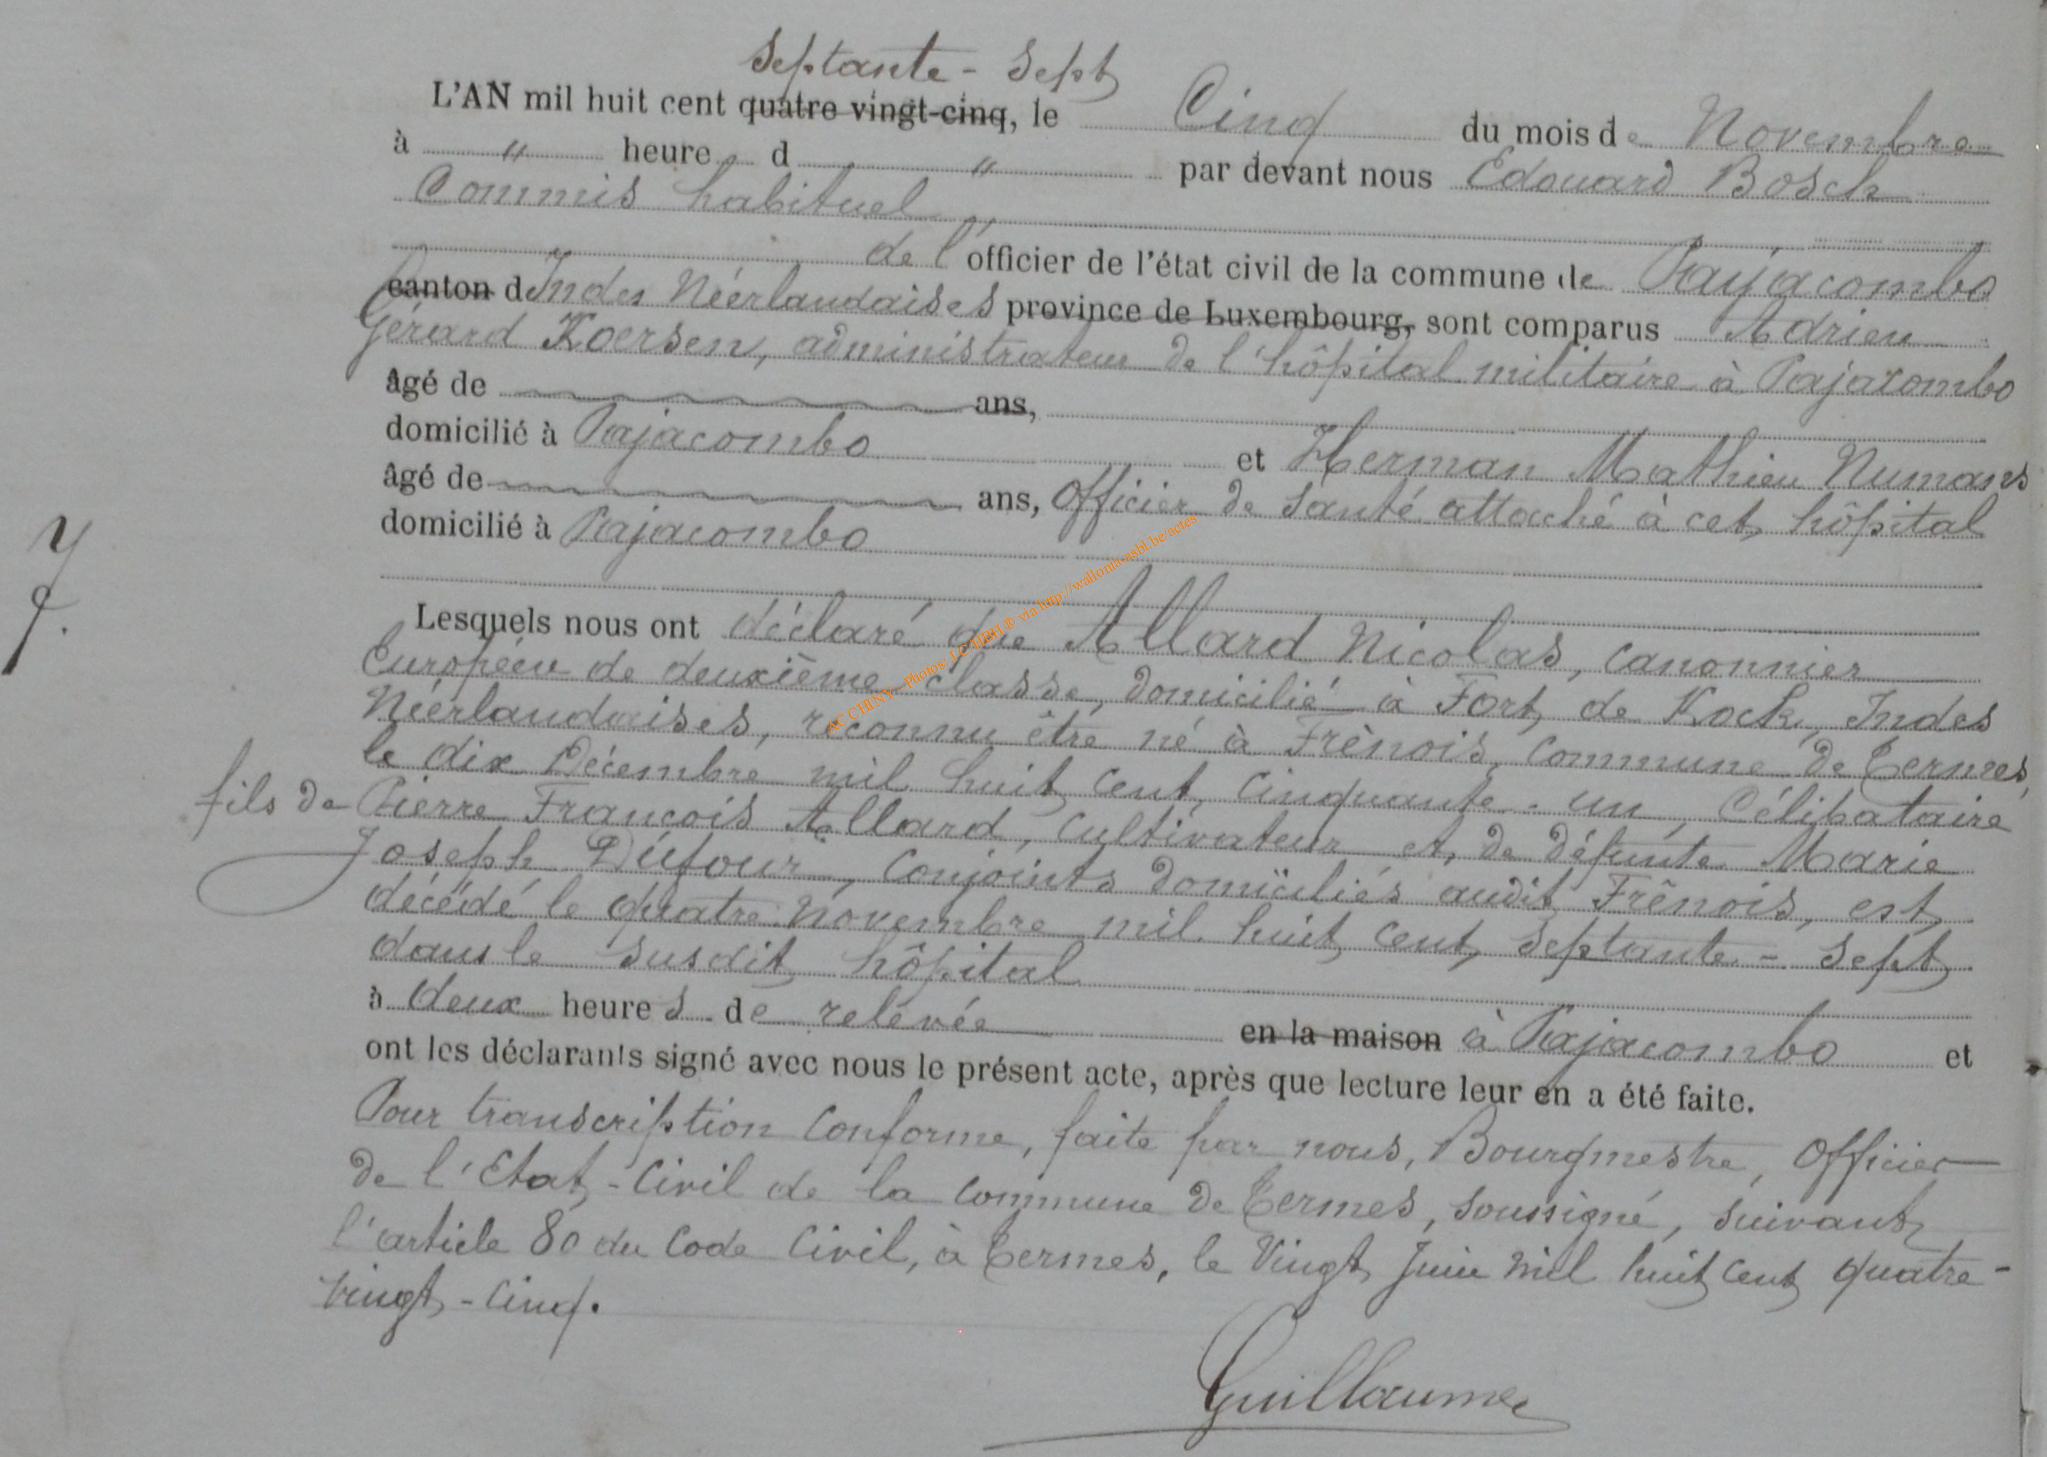 Septante - Sept
L'AN mil huit cent quatre vingt-cinq, le Cinq du mois de Novembre
à " heure d " par devant nous Edouard Bosch
Commis habituel
de l'officier de l'état civil de la commune de Paijacombo
canton d Indes Néerlandaises province de Luxembourg, sont comparus Adrien
Gérard Koersen, administrateur de l'hôpital militaire à Pajacombo
âgé de ans,
domicilié à Pajacombo et Herman Mathieu Numans
âgé de ans, officier de santé attaché à cet hôpital
domicilié à Pajacombo
Lesquels nous ont déclaré que Allard Nicolas, canonnier
Européen de deuxième classe, domicilié à Fort de Kock, Indes
Néerlandaises, reconnu être né à Frênois, commune de Termes,
le dix Décembre mil huit cent cinquante-un, Célibataire
fils de Pierre François Allard, cultivateur et de défunte Marie
Joseph Dufour, conjoints domiciliés audit Frênois, est
décédé le quatre Novembre mil huit cent septante-sept
dans le susdit hôpital
à deux heures de relevée en la maison à Pajacombo et
ont les déclarants signé avec nous le présent acte, après que lecture leur en a été faite.
Pour transcription conforme, faite par nous, Bourgmestre, Officier
de l'Etat-Civil de la commune de Termes, soussigné, suivant
l'article 80 du Code Civil, à Termes, le Vingt Juin mil huit cent quatre-
vingt-cinq.
Guillaume
AC CHINY - Photos: via http://wallonia-asbl.be/actes